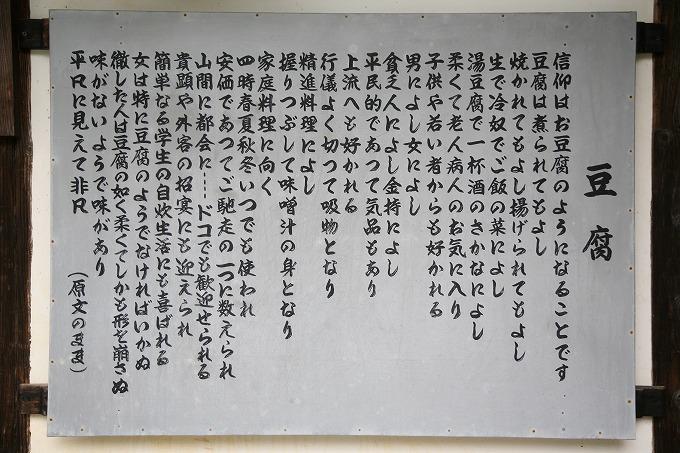 豆腐
信仰はお豆腐のようになることです
豆腐は煮られてもよし
焼かれてもよし揚げられてもよし
生で冷奴でご飯の菜によし
湯豆腐で一杯酒のさかなによし
柔くて老人病人のお気に入り
子供や若い者からも好かれる
男によし女によし
貧乏人によし金持によし
平民的であつて気品もあり
上流へも好かれる
行儀よく切つて吸物となり
精進料理によし
握りつぶして味噌汁の身となり
家庭料理に向く
四時春夏秋冬いつでも使われ
安価であつてご馳走の一つに数えられ
山間に都会に……ドコでも歓迎せられる
貴顕や外客の招宴にも迎えられ
簡単なる学生の自炊生活にも喜ばれる
女は特に豆腐のようでなければいかぬ
徹した人は豆腐の如く柔くてしかも形を崩さぬ
味がないようで味があり
平凡に見えて非凡
（原文のまま）